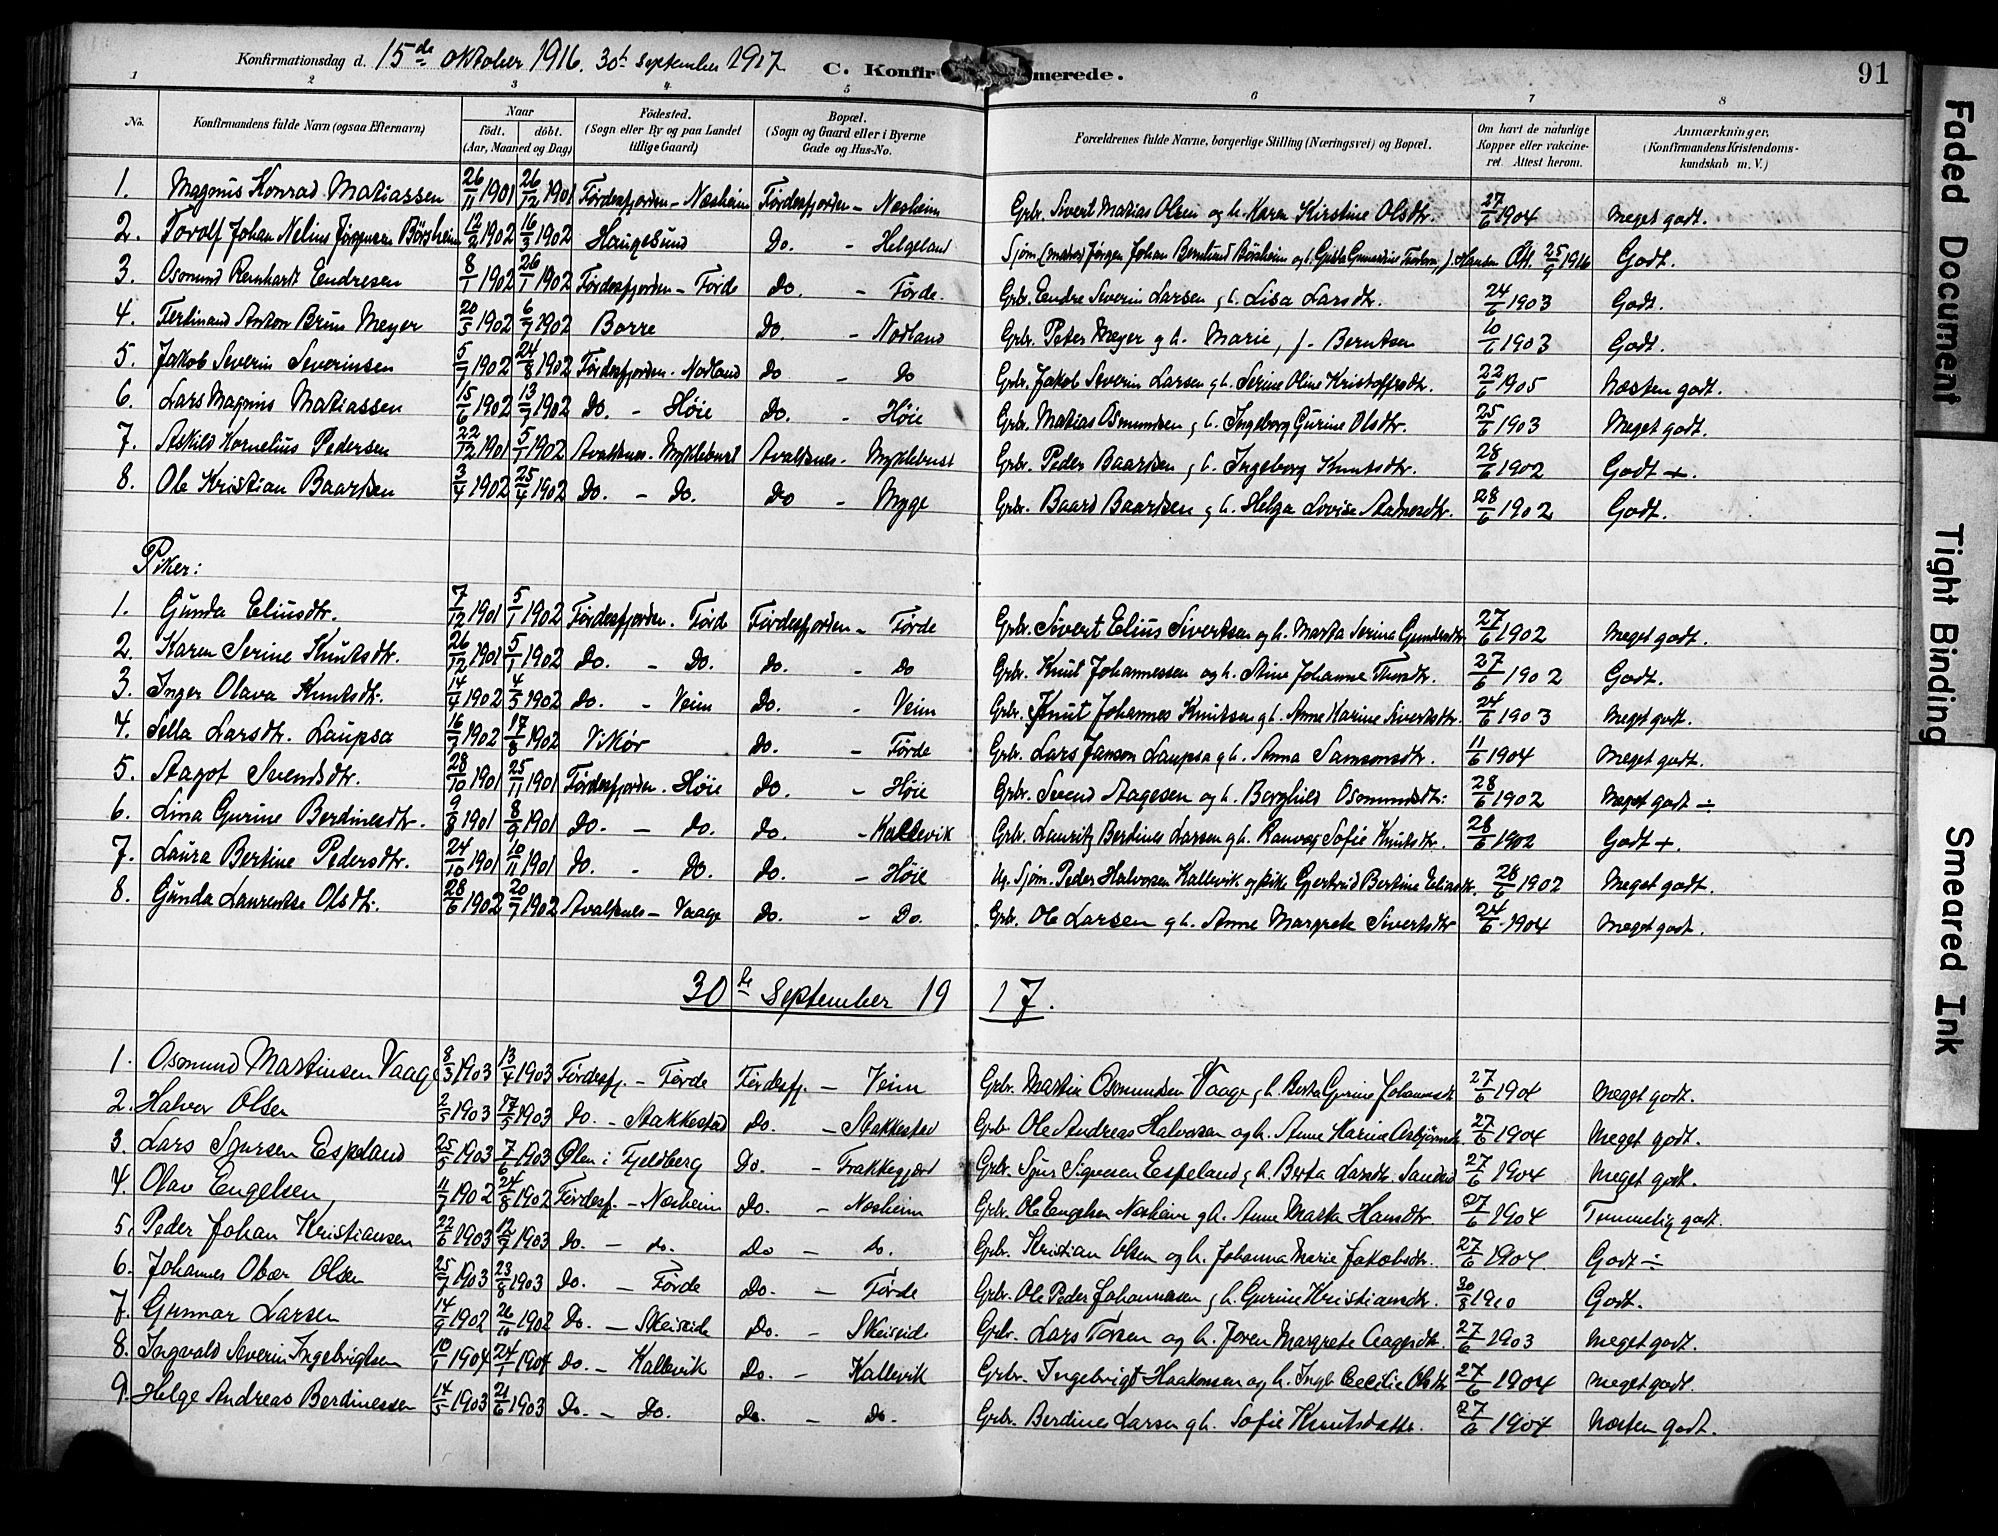 Konfirmationsdag d. 15de oktober 1916. 30t september 1917 C. Konfir merede. 91
1 2 3 4 5 6 7 8
No. Konfirmandens fulde Navn (ogsaa Efternavn) Naar födt. döbt. (Aar, Maaned og Dag) Födested. (Sogn eller By og paa Landet tillige Gaard) Bopæl. (Sogn og Gaard eller i Byerne Gade og Hus-No. Forældrenes fulde Navne, borgerlige Stilling (Næringsvei) og Bopæl. Om havt de naturlige Kopper eller vakcineret. Attest herom. Anmærkninger. (Konfirmandens Kristendomskundskab m. V.)
1. Magnus Konrad Matiassen 26/11 1901 26/12 1901 Førdesfjorden - Næsheim Førdesfjorden - Næsheim Grbr. Sivert Matias Olsen og h. Karen Kirstine Olsdtr. 27/6 1904 Meget godt.
2. Torolf Johan Nelius Jørgensen Børsheim 12/2 1902 16/3 1902 Haugesund Do. - Helgeland Sjøm. Jørgen Johan Berntund Børsheim og h. f. Hansen Att. 25/9 1916 Godt.
3. Osmund Reinhardt Endresen 8/1 1902 26/1 1902 Førdesfjorden - Førde Do. - Førde. Grbr. Endre Severin Larsen g h. Lisa Larsdtr. 24/6 1903 Godt.
4. Ferdinand Anton Brun Meyer 20/5 1902 6/7 1902 Borre Do. - Nodland Grbr. Peter Meyer g h. Marie, f. Berntsen 10/6 1903 Godt.
5. Jakob Severin Severinsen 5/7 1902 24/8 1902 Førdesfjorden - Nodland Do - Do Grbr. Jakob Severin Larsen g h. Serine Oline Kristoffersdtr. 22/6 1905 Næsten godt.
6. Lars Magnus Matiassen 15/6 1902 13/7 1902 Do. - Høie Do. - Høie Grbr. Matias Osmundsen g h. Ingeborg Gurine Olsdtr. 25/6 1903 Meget godt.
7. Askild Kornelius Pedersen 22/12 1901 5/1 1902 Avaldsnes - Myklebust Avaldsnes - Myklebust Grbr. Peder Baardsen g h. Ingeborg Knutsdtr. 28/6 1902 Godt +.
8. Ole Kristian Baardsen 3/4 1902 25/4 1902 Do. - Do. Do - Myge Grbr. Baard Baardsen g h. Helga Lovise 28/6 1902 Godt.
Piker:
1. Gunda Eliusdtr. 7/12 1901 5/1 1902 Førdesfjorden - Førde Førdesfjorden - Førde Grbr. Sivert Elius Sivertsen og h. Marta Serina Gundersdtr 27/6 1902 Meget godt.
2. Karen Serine Knutsdtr. 26/12 1901 5/1 1902 Do. - Do. Do. - Do Grbr. Knut Johannessen og h. Stine Johanne Thorsdtr. 27/6 1902 Godt.
3. Inger Olava Knutsdtr. 14/4 1902 4/5 1902 Do. - Veim Do. - Veim Grbr. Knut Johannes Knutsen g h. Anne Karine Sivertsdtr. 24/6 1903 Meget godt.
4. Sella Larsdtr. Laupsa 16/7 1902 17/8 1902 Vikør Do. - Førde Grbr. Lars Janson Laupsa g h. Anna Samsonsdtr. 11/6 1904 Meget godt.
5. Aagot Svendsdtr. 28/10 1901 25/11 1901 Førdesfjorden - Høie Do. - Høie Grbr. Svend Aagesen og h. Borghild Osmundsdtr. 28/6 1902 Meget godt ÷
6. Lina Gurine Berdinesdtr. 9/8 1901 8/9 1901 Do. - Do. Do. - Kallevik Grbr. Lauritz Berdines Larsen g h. Ranveg Sofie Knutsdtr. 28/6 1902 Godt +.
7. Laura Bertine Pedersdtr. 24/10 1901 10/11 1901 Do. - Do. Do. - Høie Ug. Sjøm. Peder Halvorsen Kallevik og pike Gjertrud Bertine Eliasdtr. 28/6 1902 Meget godt.
8. Gunda Laurentse Olsdtr. 28/6 1902 20/7 1902 Avaldsnes - Vaage Do. - Do. Grbr. Ole Larsen g h. Anne Margrete Sivertsdtr 24/6 1904 Meget godt.
30te September 19 17.
1. Osmund Martinsen Vaage 8/3 1903 13/4 1903 Førdesfj. - Førde Førdesfj. - Veim Grbr. Martin Osmundsen Vaage g h. Berta Gurine Johannesdt 27/6 1904 Meget godt.
2. Halvor Olsen 2/5 1903 17/5 1903 Do. - Stakkestad Do. - Stakkestad Grbr Ole Andreas Halvorsen og h. Anne Karine Asbjørnsdtr. 27/6 1904 Meget godt.
3. Lars Sjursen Espeland 25/5 1903 7/6 1903 Ølen i Fjeldberg Do. - Frakkegjerd Grbr. Sjur Sigvesen Espeland g h. Berta Larsdtr. Sandvid 27/6 1904 Meget godt.
4. Olav Engelsen 11/7 1902 24/8 1902 Førdesf. - Næsheim Do. - Næsheim Grbr. Ole Engelsen Næsheim g h. Anne Marta Hansdtr. 27/6 1904 Temmelig godt.
5. Peder Johan Kristiansen 22/6 1903 12/7 1903 Do. - do. Do - Do. Grbr. Kristian Olsen og h. Johanna Marie Jakobsdtr. 27/6 1904. Godt ÷
6. Johannes Obær Olsen 25/7 1903 23/8 1903 Do. - Førde Do. - Førde Grbr. Ole Peder Johannesen g h. Gurine Kristiansdtr. 30/8 1910 Godt.
7. Gunnar Larsen 14/9 1902 26/10 1902 Do. - Skeiseide Do. - Skeiseide Grbr. Lars Torsen og h. Joren Margrete Aagesdtr. 27/6 1903 Meget godt.
8. Ingvald Severin Ingebrigtsen 10/1 1904 24/1 1904 Do. - Kallevik Do. - Kallevik Grbr. Ingebrigt Haakonsen og h. Ingb Cecilie Olsdtr 27/6 1904 Meget godt.
9. Helge Andreas Berdinessen 14/5 1903 21/6 1903 Do. - Do. Do. - Do. Grbr. Berdines Larsen g h. Sofie Knutsdatter. 27/6 1904 Næsten godt.
Faded Document
Tight Binding
Smeared Ink